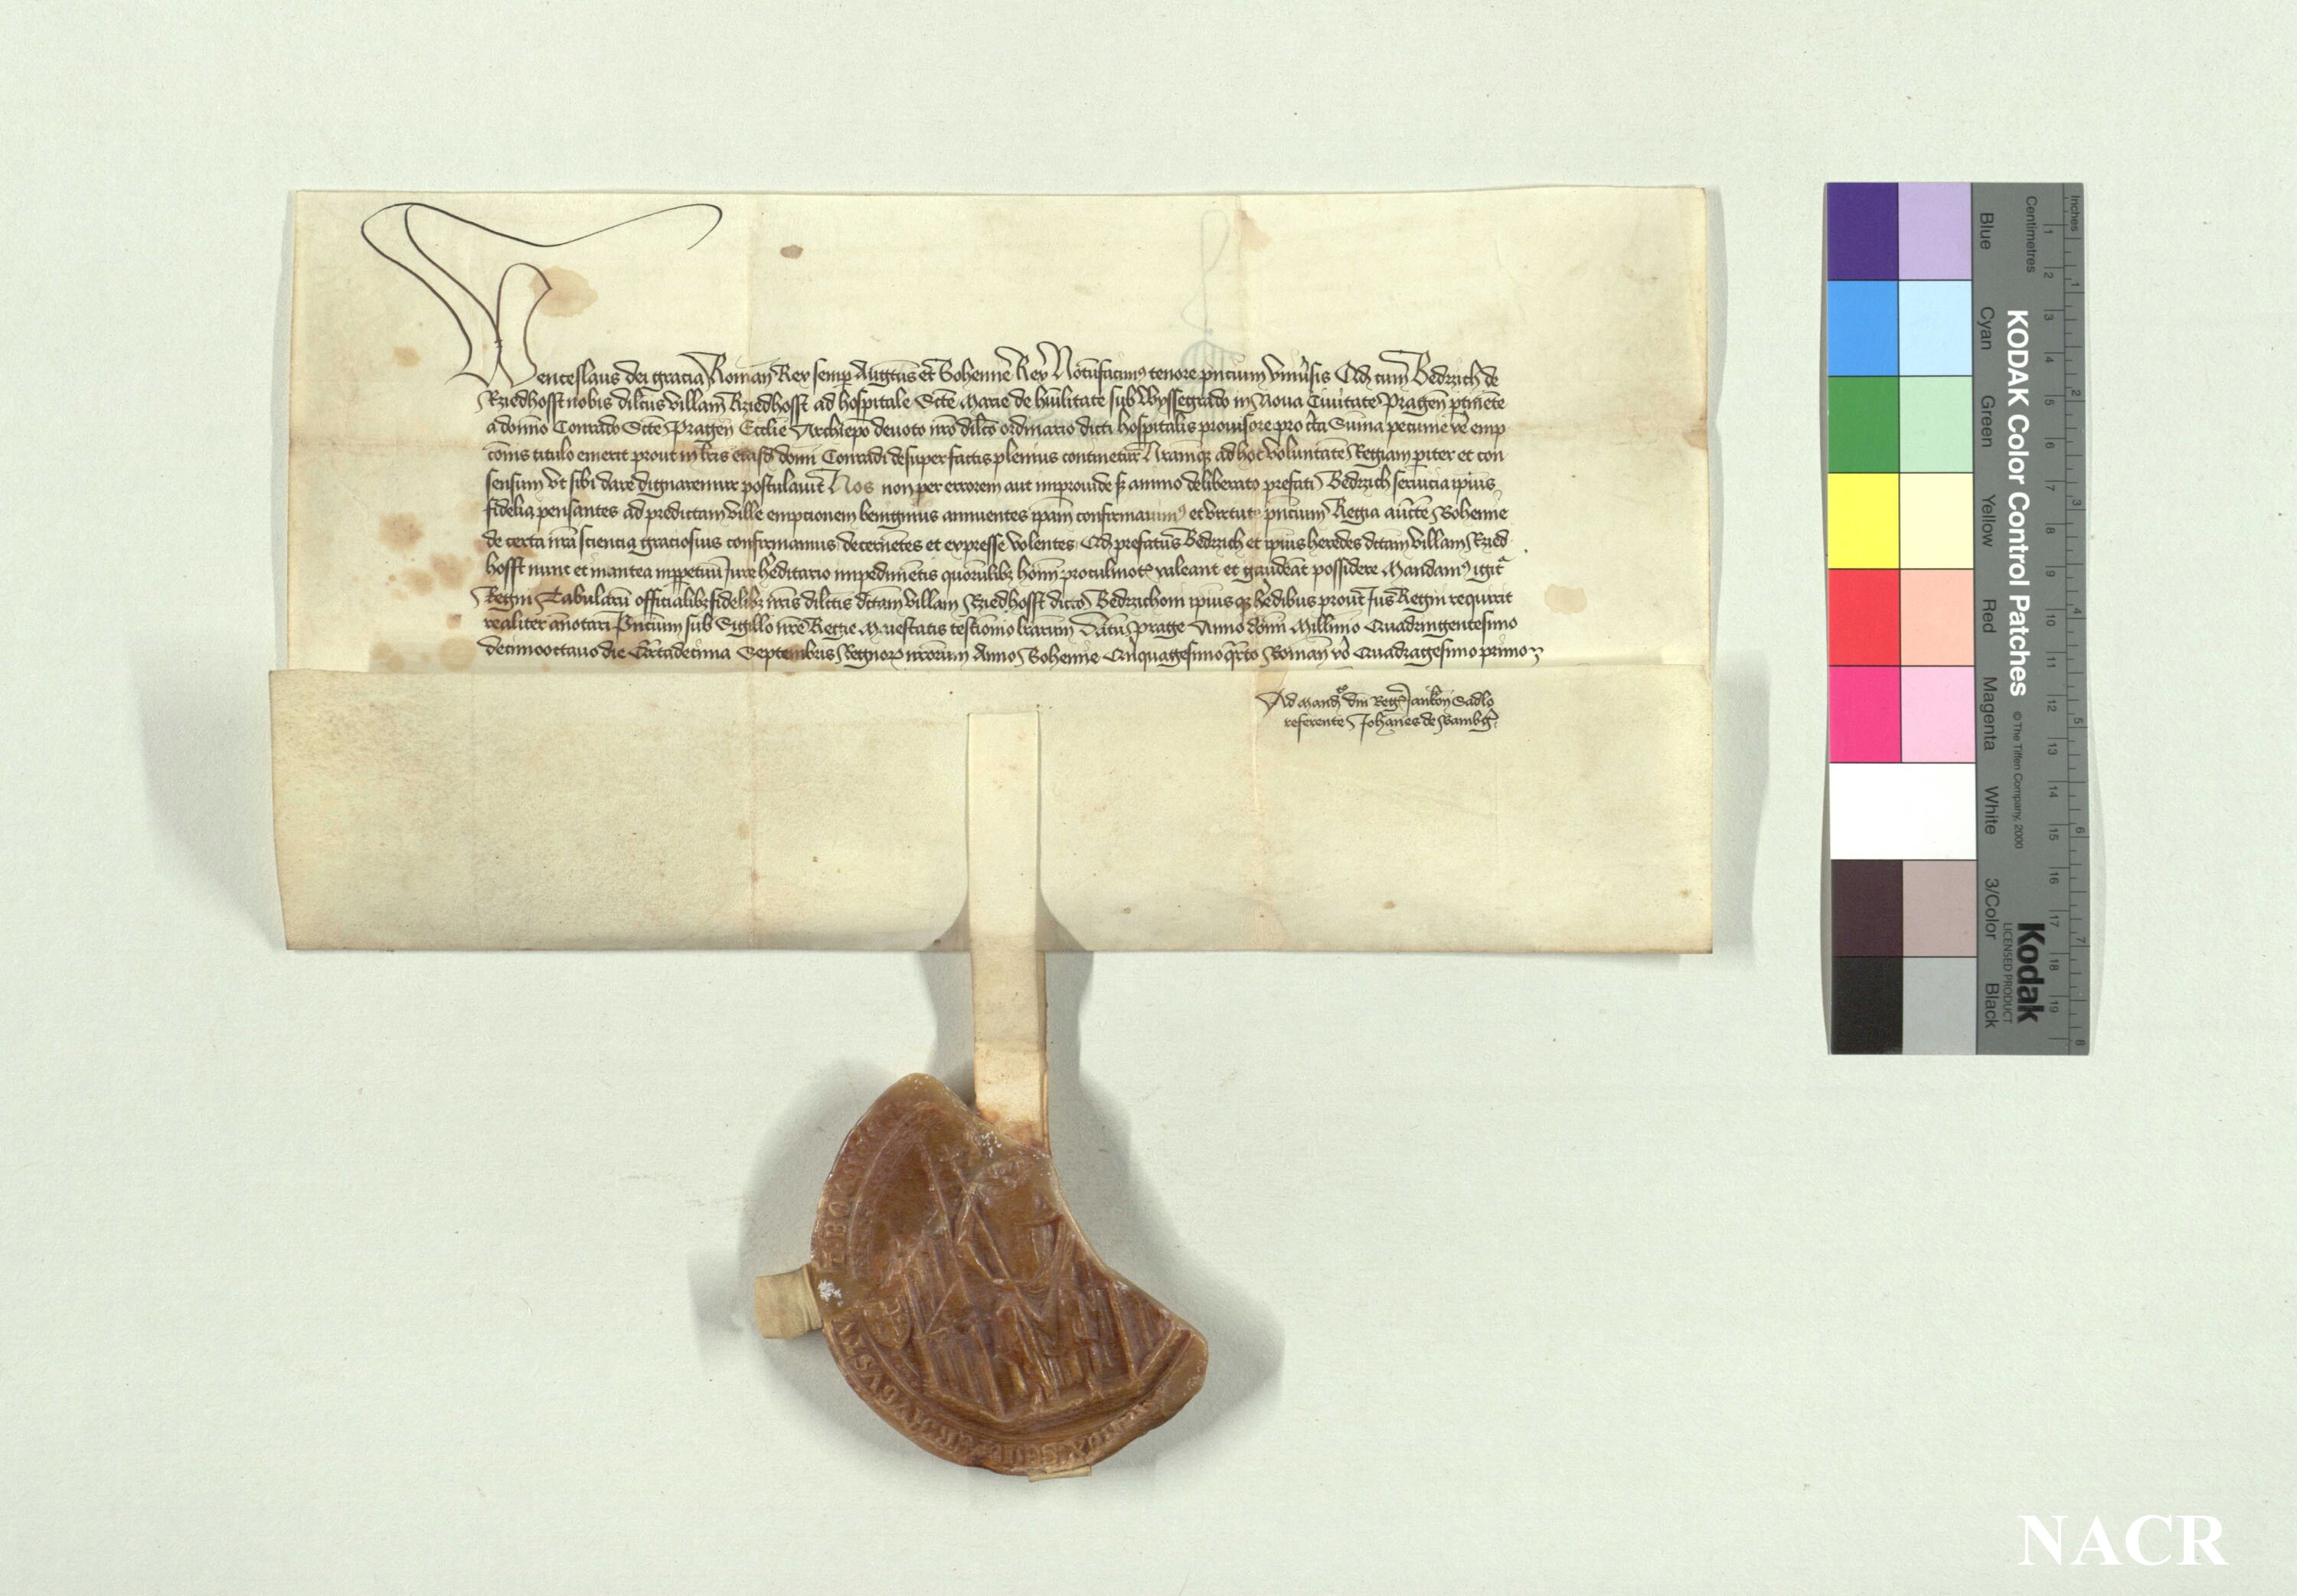 Wenceslaus dei gracia Roman Rex semp Augustus et Bohemie Rex Notumfacimus tenore pncium vniuersis Qd cum Bedrzich de
Rziedhofft nobis dilectus villam Rziedhofft ad hospitale Scte Marie de humilitate sub Wyssegrado in Noua Ciuitate Pragen ptinete
a domino Conrado Scte Pragen Ecclie Archiepo deuoto nro dilcto ordinario dicti hospitalis prouisore pro certa Suma pecunie vere emp
conis titulo emerit prout in lris eiusd domi Conradi desuper factis plenius continetur Nramqz ad hoc voluntate Regiam pariter et con
sensum vt sibi dare dignaremur postulauit Nos non per errorem aut improuide sz animo deliberato prefati Bedrzich seruicia ipius
fidelia pensantes ad predictam ville empcionem benignius annuentes ipam confirmauimus et virtute pncium Regia aucte Bohemie
de certa nra sciencia graciosius confirmamus decernetes et expresse volentes Qd prefatus Bedrzich et ipius heredes dictam villam Rzied
hofft nunc et inantea inppetuu Jure hereditario impedimetis quorulibz homi proculmotis valeant et gaudeat possidere Mandamus igitr
Regni Tabularu officialibz fidelibz nris dilectis dictam villam Rziedhofft dicto Bedrzichoni ipiusqz heredibus prout Jus Regni requirit
realiter annotari Pncium sub Sigillo nre Regie Maiestatis testimonio lrarum Datum Prage Anno domi Millimo Quadringentesimo
decimooctauo die Qrtadecima Septembris Regnorz nrorum Anno Bohemie Quiquagesimoqrto Roman vo Quadragesimo primo
Ad Mand dni Regis Jankon Sadlo
referente Johanes de Bambg
Inches
Centimetres
Blue
Cyan
Green
Yellow
Red
Magenta
White
3/Color
Black
KODAK Color Control Patches
© The Tiffen Company, 2000
Kodak
LICENSED PRODUCT
1 2 3 4 5 6 7 8 9 10 11 12 13 14 15 16 17 18 19
1 2 3 4 5 6 7 8
NACR